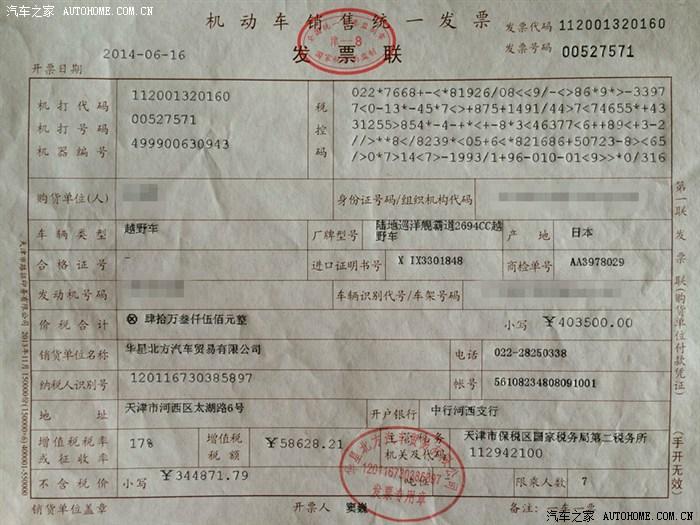 汽车之家
AUTOHOME.COM.CN
汽车之家
AUTOHOME.COM.CN
机动车销售统一发票
发票联
津—8
发票代码 112001320160
发票号码 00527571
2014-06-16
开票日期
机打代码 112001320160
机打号码 00527571
机器编号 499900630943
税控码
022*7668+-<*81926/08<<9/-<>86*9*>-3397
7<0-13*-45*7<>+875+1491/44>7<74655*+43
31255>854*-4-+*<+-8*3<46377<6++89<+3-2
//>**8</8239*<05+6<*821686+50723-8><65
/>0*7>14<7>-1993/1+96-010-01<9>>*0/316
购货单位(人)
身份证号码/组织机构代码
车辆类型 越野车
厂牌型号 陆地巡洋舰霸道2694CC越野车
产地 日本
合格证号 -
进口证明书号 X IX3301848
商检单号 AA3978029
发动机号码
车辆识别代号/车架号码
价税合计 ⊗ 肆拾万叁仟伍佰元整
小写 ￥403500.00
销货单位名称 华星北方汽车贸易有限公司
电话 022-28250338
纳税人识别号 120116730385897
账号 56108234808091001
地址 天津市河西区太湖路6号
开户银行 中行河西支行
增值税税率或征收率 17%
增值税税额 ￥58628.21
机关及代码
天津市保税区国家税务局第二税务所
112942100
不含税价 小写 ￥344871.79
限乘人数 7
销货单位盖章
开票人 窦巍
备注:
120116730385897
发票专用章
第一联 发票联(购货单位付款凭证)
(手开无效)
汽车之家
AUTOHOME.COM.CN
汽车之家
AUTOHOME.COM.CN